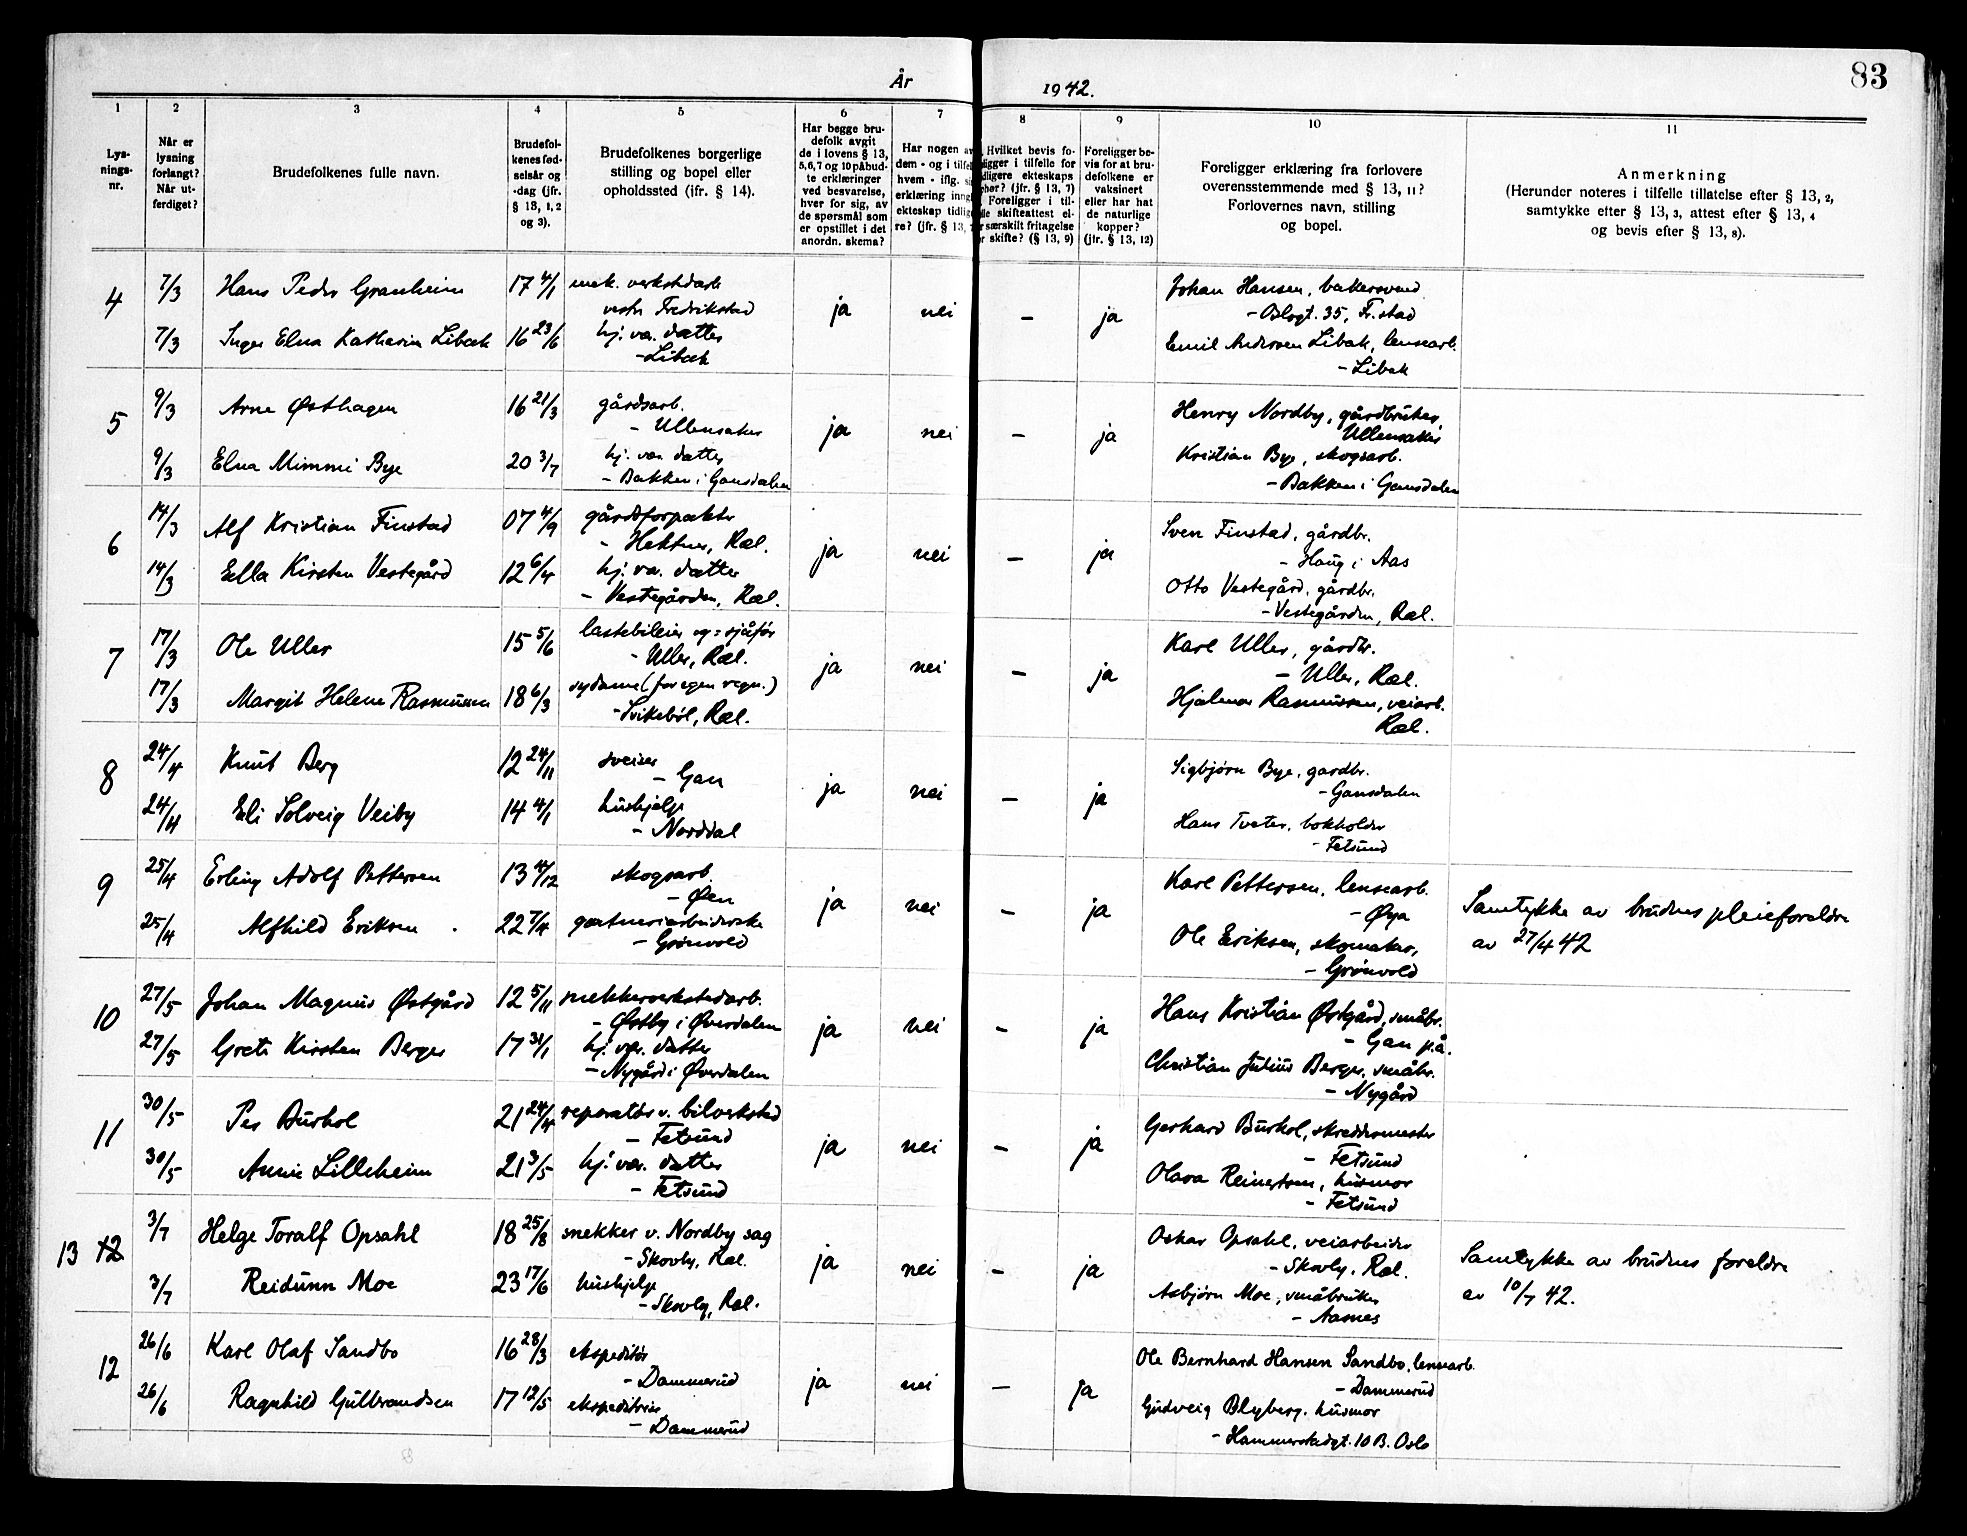 År 1942.
83
1 2 3 4 5 6 7 8 9 10 11
Lys-
nings-
nr.
Når er
lysning
forlangt?
Når ut-
ferdiget?
Brudefolkenes fulle navn.
Brudefol-
kenes fød-
selsår og
-dag (jfr.
§ 13, 1, 2
og 3).
Brudefolkenes borgerlige
stilling og bopel eller
opholdssted (jfr. § 14).
Har begge bru-
defolk avgit
de i lovens § 13,
5, 6, 7 og 10 påbud-
te erklæringer
ved besvarelse,
hver for sig, av
de spørsmål som
er opstillet i det
anordn. skema?
Har nogen av
dem - og i tilfel
hvem - iflg. si
erklæring inng
ekteskap tidlig
re? (jfr. § 13,
Hvilket bevis fo-
ligger i tilfelle for
dligere ekteskaps
pher? (jfr. § 13, 7)
Foreligger i til-
lle skifteattest el-
r særskilt fritagelse
r skifte? (§ 13, 9)
Foreligger be-
vis for at bru-
defolkene er
vaksinert
eller har hat
de naturlige
kopper?
(jfr. § 13, 12)
Foreligger erklæring fra forlovere
overensstemmende med § 13, 11?
Forlovernes navn, stilling
og bopel.
Anmerkning
(Herunder noteres i tilfelle tillatelse efter § 13, 2,
samtykke efter § 13, 3, attest efter § 13, 4
og bevis efter § 13, 8).
4 7/3 Hans Peder Granheim 17 4/1 mek. verkstedarb. ja nei – ja Johan Hansen, bakersvend
vestre Fredrikstad - 35, Fr.stad
7/3 Inger Elna Katharina Libæk 16 23/6 hj. vær. datter Emil Andersen Libæk, lensearb.
- Libæk - Libæk
5 9/3 Arne Østhagen 16 21/3 gårdsarb. ja nei – ja Henry Nordby, gårdbruker,
- Ullensaker Ullensaker
9/3 Elna Mimmi Bye 20 3/7 hj. vær. datter Kristian Bye, skogsarb.
- Bakken i Gansdalen - Bakken i Gansdalen
6 14/3 Alf Kristian Finstad 07 4/9 gårdsforpakter ja nei – ja Sven Finstad, gårdbr.
- Hektner, Ræl. - Haug i Aas
14/3 Ella Kirsten Vestegård 12 6/4 hj. vær. datter Otto Vestegård, gårdbr.
- Vestegården, Ræl. - Vestegården, Ræl.
7 17/3 Ole Uller 15 5/6 lastebileier og = sjåfør ja nei – ja Karl Uller, gårdbr.
- Uller, Ræl. - Uller, Ræl.
17/3 Margit Helene Rasmussen 18 6/3 sydame (for egen regn.) Hjalmar Rasmussen, veiarb.
- Svikebøl, Ræl. Ræl.
8 24/4 Knut Berg 12 24/11 sveiser ja nei – ja Sigbjørn Bye, gardbr.
- Gan - Gansdalen
24/4 Eli Solveig Veiby 14 4/1 hushjelp Hans Tveter, bokholder
- Norddal - Fetsund
9 25/4 Erling Adolf Pettersen 13 4/12 skogsarb. ja nei – ja Karl Pettersen, lensearb.
- Øen - Øya
25/4 Alfhild Eriksen 22 7/4 gartneriarbeiderske Ole Eriksen, skomaker,
- Grønvold - Grønvold
Samtykke av brudens pleieforeldre
av 27/4 42
10 27/5 Johan Magnus Østgård 12 5/11 snekkerverkstedarb. ja nei – ja Hans Kristian Østgård, småbr.
- Østby i Øverdalen - Gan p.å.
27/5 Grete Kirsten Berger 17 31/1 hj. vær. datter Christian Julius Berger, småbr.
- Nygård i Øverdalen - Nygård
11 30/5 Per Burhol 21 24/4 reparatør v. bilverksted ja nei – ja Gerhard Burhol, skreddermester
- Fetsund - Fetsund
30/5 Annie Lilleheim 21 3/5 hj. vær. datter Olava Reinertsen, husmor
- Fetsund - Fetsund
13 12 3/7 Helge Toralf Opsahl 18 25/8 snekker v. Nordby sag ja nei – ja Oskar Opsahl, veiarbeider
- Skovly, Ræl. - Skovly, Ræl.
3/7 Reidunn Moe 23 17/6 hushjelp Asbjørn Moe, småbruker
- Skovly, Ræl. - Aasnes
Samtykke av brudens foreldre
av 10/7 42.
12 26/6 Karl Olaf Sandbo 16 28/3 ekspeditør ja nei – ja Ole Bernhard Hansen Sandbo, lensearb.
- Dammerud - Dammerud
26/6 Ragnhild Gulbrandsen 17 12/5 ekspeditrise Gudveig Blyberg, husmor
- Dammerud - Hammerstadgt. 10 B. Oslo